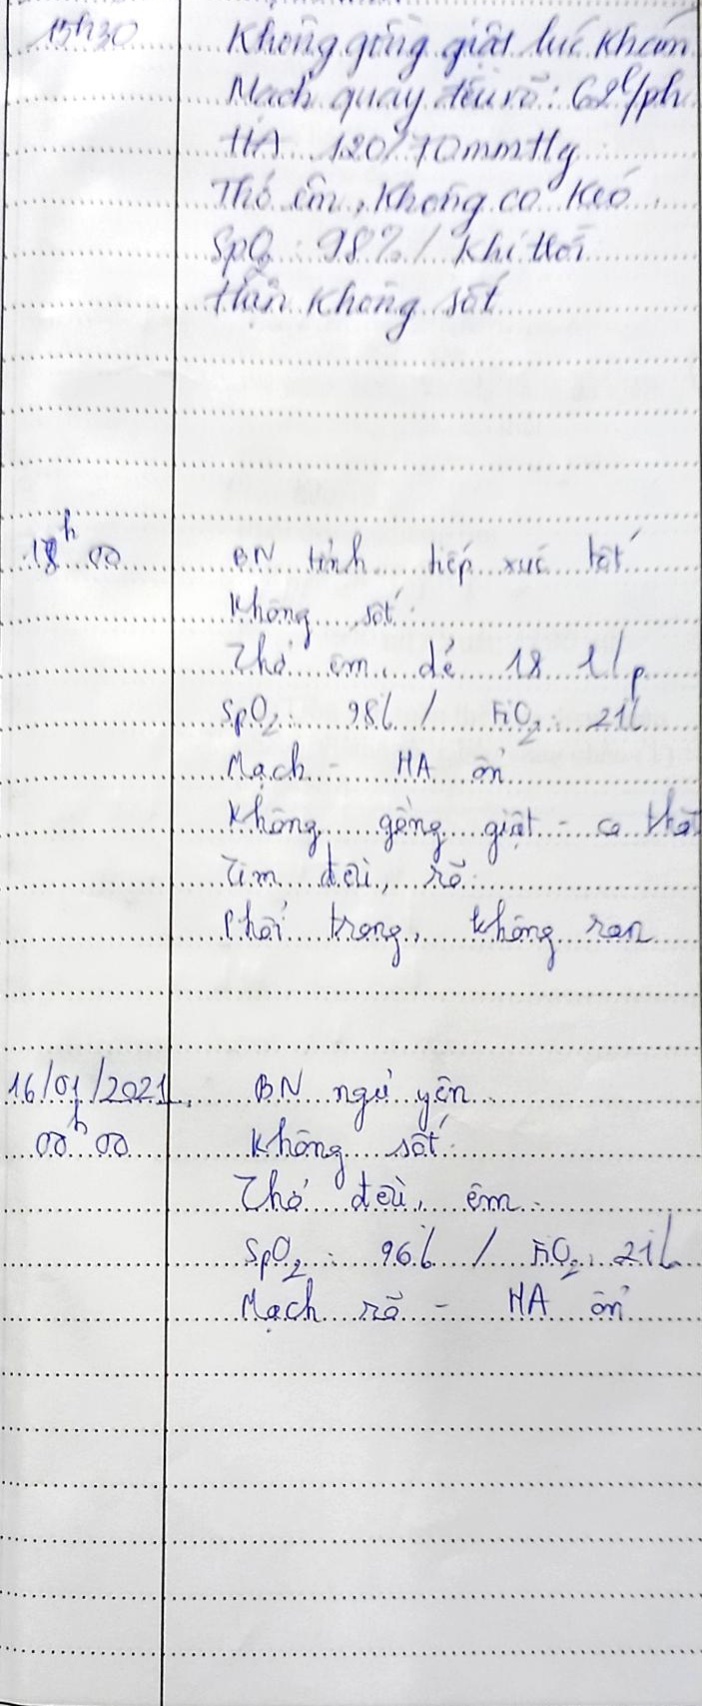 15h30 Không gồng giật lúc khám
Mạch quay đều rõ: 62l/ph
HA 120/70mmHg
Thở êm, không co kéo
SpO2: 98% / khí trời
Hiện không sốt
18h00 BN tỉnh tiếp xúc tốt
Không sốt
Thở êm, dễ 18 l/p
SpO2: 98% / FiO2: 21%
Mạch - HA ổn
Không gồng giật - co thắt
Tim đều, rõ
Phổi trong, không ran
16/01/2021 BN ngủ yên
00h00 Không sốt
Thở đều, êm
SpO2: 96% / FiO2: 21%
Mạch rõ - HA ổn